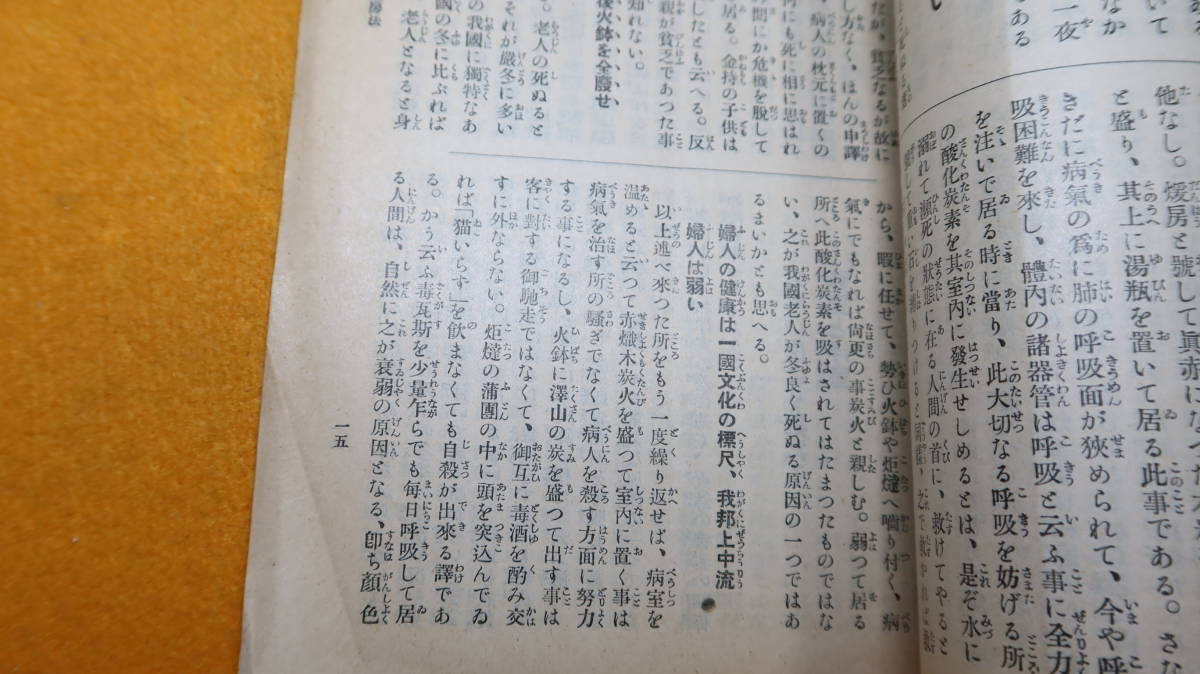 い
他なし。煖房と號して眞赤に
と盛り、其上に湯瓶を置いて居る此事である。さな
きだに病氣の爲に肺の呼吸面が狹められて、今や呼
吸困難を來し、體內の諸器管は呼吸と云ふ事に全力
を注いで居る時に當り、此大切なる呼吸を妨げる所
の酸化炭素を其室內に發生せしめるとは、是ぞ水に
溺れて瀕死の狀態に在る人間の首に、救けてやると
たが、貧乏なるが故に
し方なく、ほんの申譯
、病人の枕元に置くの
何にも死に相に思はれ
の間にか危機を脫して
居る。金持の子供は
したとも云へる。反
親が貧乏であつた事
知れない。
後火鉢を全廢せ
。老人の死ぬると
それが嚴冬に多い
の我國に獨特なあ
國の冬に比ぶれば
老人となると身
房法
から、暇に任せて、勢ひ火鉢や炬燵へ嚙り付く、病
氣にでもなれば尙更の事炭火と親しむ。弱つて居る
所へ此酸化炭素を吸はされてはたまつたものではな
い、之が我國老人が冬良く死ぬる原因の一つではあ
るまいかとも思へる。
婦人の健康は一國文化の標尺、我邦上中流
婦人は弱い
以上述べ來つた所をもう一度繰り返せば、病室を
温めると云つて赤熾木炭火を盛つて室內に置く事は
病氣を治す所の騷ぎでなくて病人を殺す方面に努力
する事になるし、火鉢に澤山の炭を盛つて出す事は
客に對する御馳走ではなくて、御互に毒酒を酌み交
すに外ならない。炬燵の蒲團の中に頭を突込んでゐ
れば「猫いらず」を飮まなくても自殺が出來る譯であ
る。かう云ふ毒瓦斯を少量乍らでも每日呼吸して居
る人間は、自然に之が衰弱の原因となる、卽ち顏色
一五